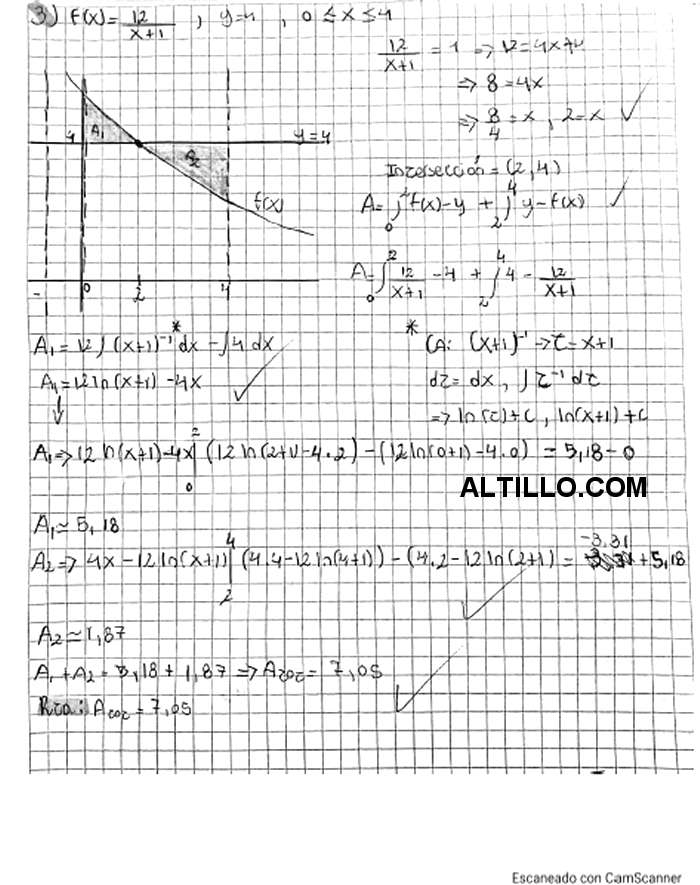 3) f(x) = 12/(x+1) , y=4 , 0 ≤ x ≤ 4
12/(x+1) = 4 => 12 = 4x+4
=> 8 = 4x
=> 8/4 = x , 2 = x
4 A1 y=4
A2
f(x)
0 2 4
Intersección = (2,4)
A = ∫₀² f(x)-y + ∫₂⁴ y-f(x)
A = ∫₀² 12/(x+1) - 4 + ∫₂⁴ 4 - 12/(x+1)
A1 = 12 ∫ (x+1)⁻¹* dx - ∫ 4 dx
A1 = 12 ln(x+1) - 4x
* CA: (x+1)⁻¹ → t = x+1
dt = dx , ∫ t⁻¹ dt
=> ln(t)+C , ln(x+1)+C
A1 => 12 ln(x+1)-4x |₀² (12 ln(2+1)-4.2) - (12 ln(0+1)-4.0) = 5,18-0
ALTILLO.COM
A1 ≃ 5,18
A2 => 4x - 12 ln(x+1) |₂⁴ (4.4-12 ln(4+1)) - (4.2-12 ln(2+1) = -3,31 + 5,18
A2 ≃ 1,87
A1 + A2 = 5,18 + 1,87 => Atot = 7,05
Rta: Atot = 7,05
Escaneado con CamScanner